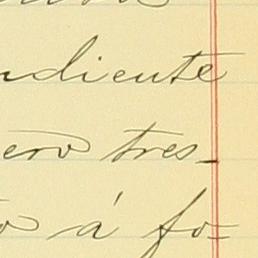 ndiente
ero tres_
o á fo=